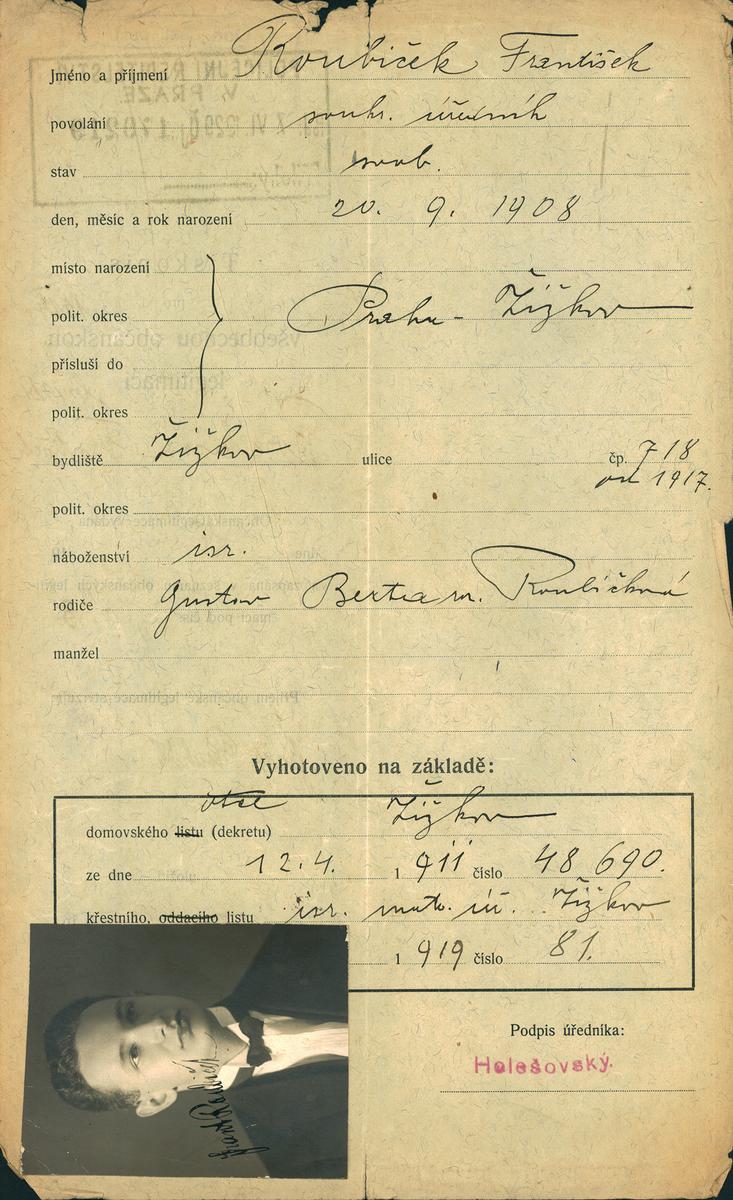 Jméno a příjmení Roubíček František
povolání soukr. úředník
stav svob.
den, měsíc a rok narození 20. 9. 1908
místo narození
polit. okres Praha - Žižkov
přísluší do
polit. okres
bydliště Žižkov ulice čp. 718
od 1917.
polit. okres
náboženství isr.
rodiče Gustav Berta roz. Roubíčková
manžel
Vyhotoveno na základě:
otce Žižkov
domovského listu (dekretu)
ze dne 12. 4. 1 911 číslo 48 690.
křestního, oddacího listu isr. mat. úř. Žižkov
1 919 číslo 81.
Podpis úředníka:
Holešovský.
Frant. Roubíček